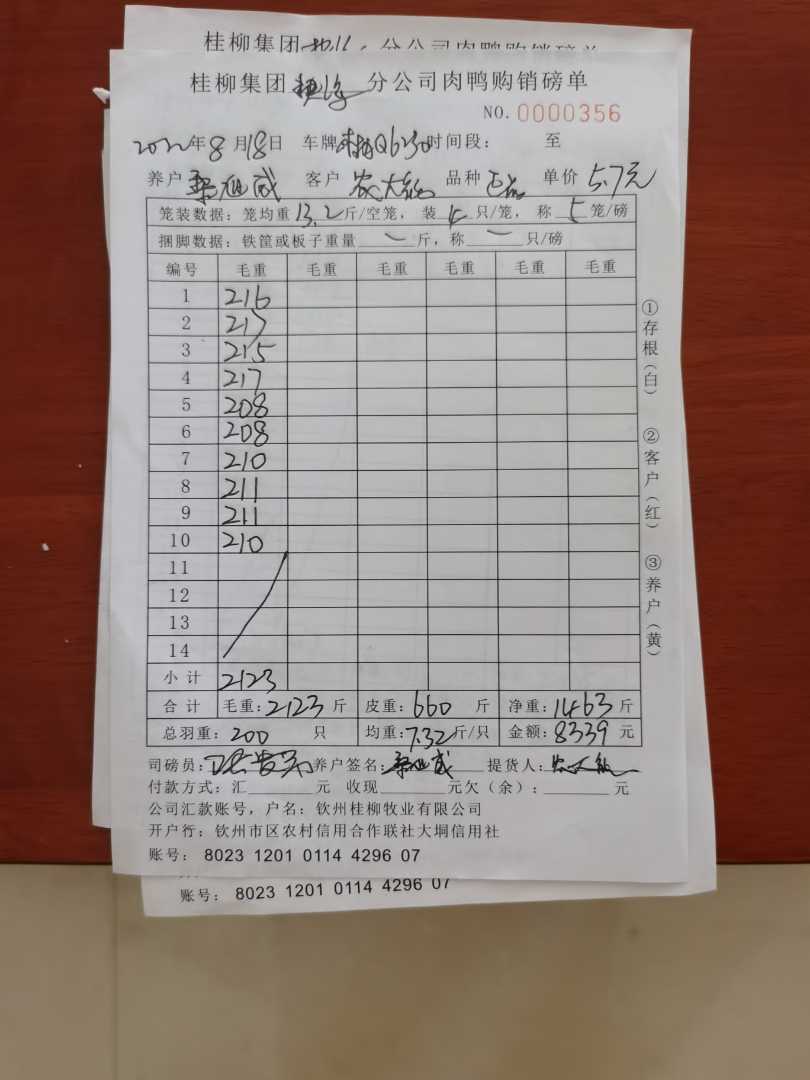 桂柳集团 分公司肉鸭购销磅单
桂柳集团 分公司肉鸭购销磅单
NO. 0000356
2022年8月18日 车牌 Q6230 时间段： 至
养户 客户 农大 品种 正品 单价 5.7元
笼装数据：笼均重13.2斤/空笼，装4只/笼，称5笼/磅
捆脚数据：铁筐或板子重量 一 斤，称 一 只/磅
编号 毛重 毛重 毛重 毛重 毛重 毛重
1 216
2 217
3 215
4 217
5 208
6 208
7 210
8 211
9 211
10 210
11
12
13
14
小计 2123
合计 毛重：2123斤 皮重：660斤 净重：1463斤
总羽重：200只 均重：7.32斤/只 金额：8339元
司磅员： 养户签名： 提货人：农大
付款方式：汇 元 收现 元欠（余）： 元
公司汇款账号，户名：钦州桂柳牧业有限公司
开户行：钦州市区农村信用合作联社大垌信用社
账号： 8023 1201 0114 4296 07
账号： 8023 1201 0114 4296 07
①存根（白）
②客户（红）
③养户（黄）